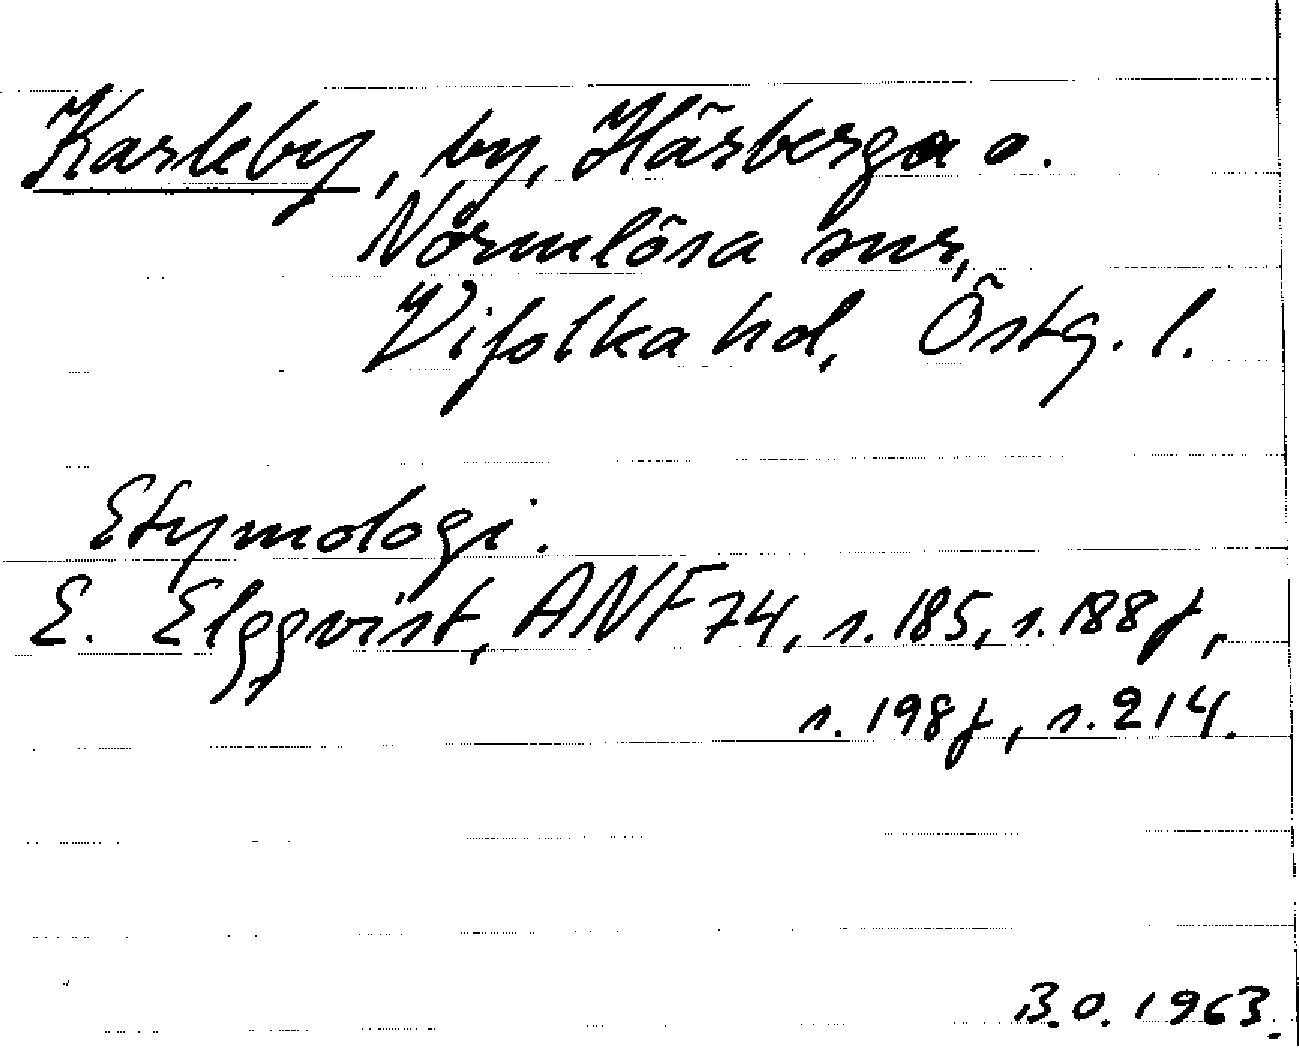 Karleby, by, Hårberga o.
Normlösa snr,
Vifolka hd, Östg. l.
Etymologi.
E. Elgqvist, ANF 74, s. 185, s. 188 f,
s. 198 f, s. 214.
B.O. 1963.